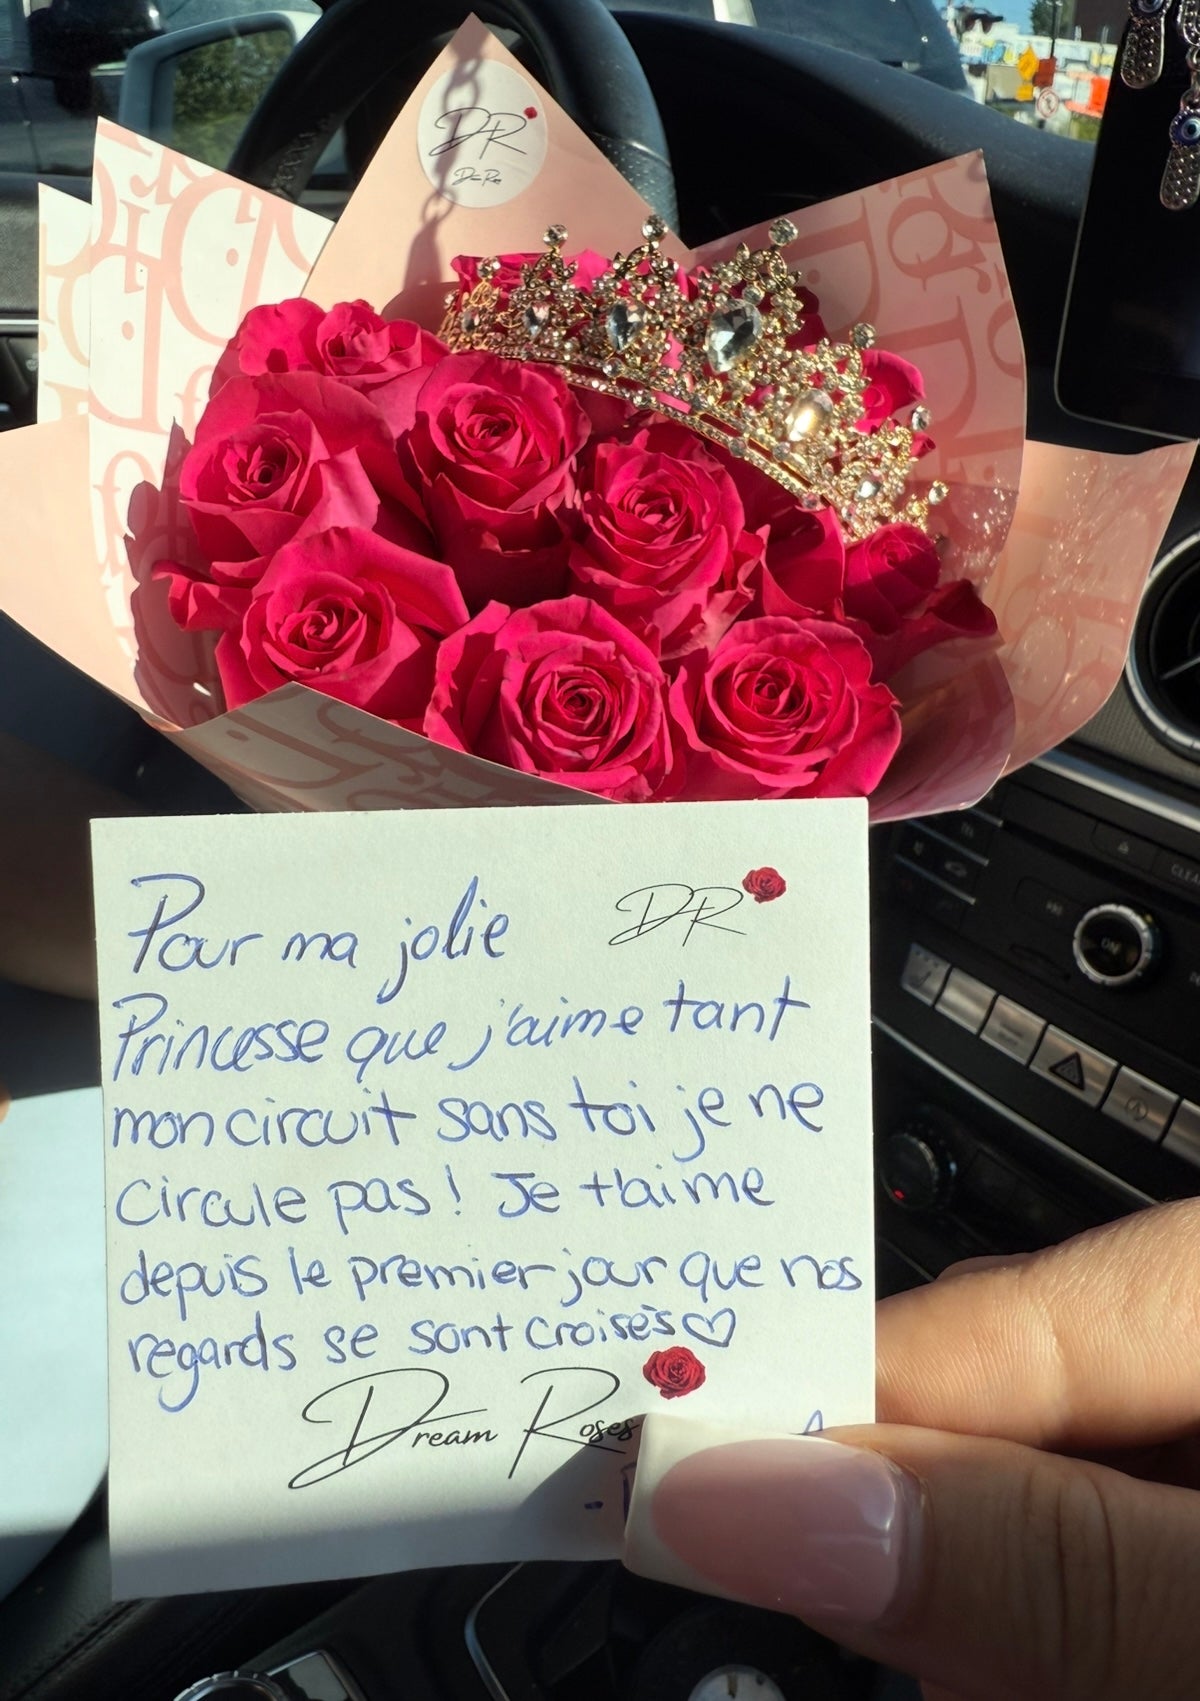 DR
Dream Roses
Pour ma jolie
DR
Princesse que j'aime tant
mon circuit sans toi je ne
circule pas! Je t'aime
depuis le premier jour que nos
regards se sont croisés♡
Dream Roses
ON
CLEAR